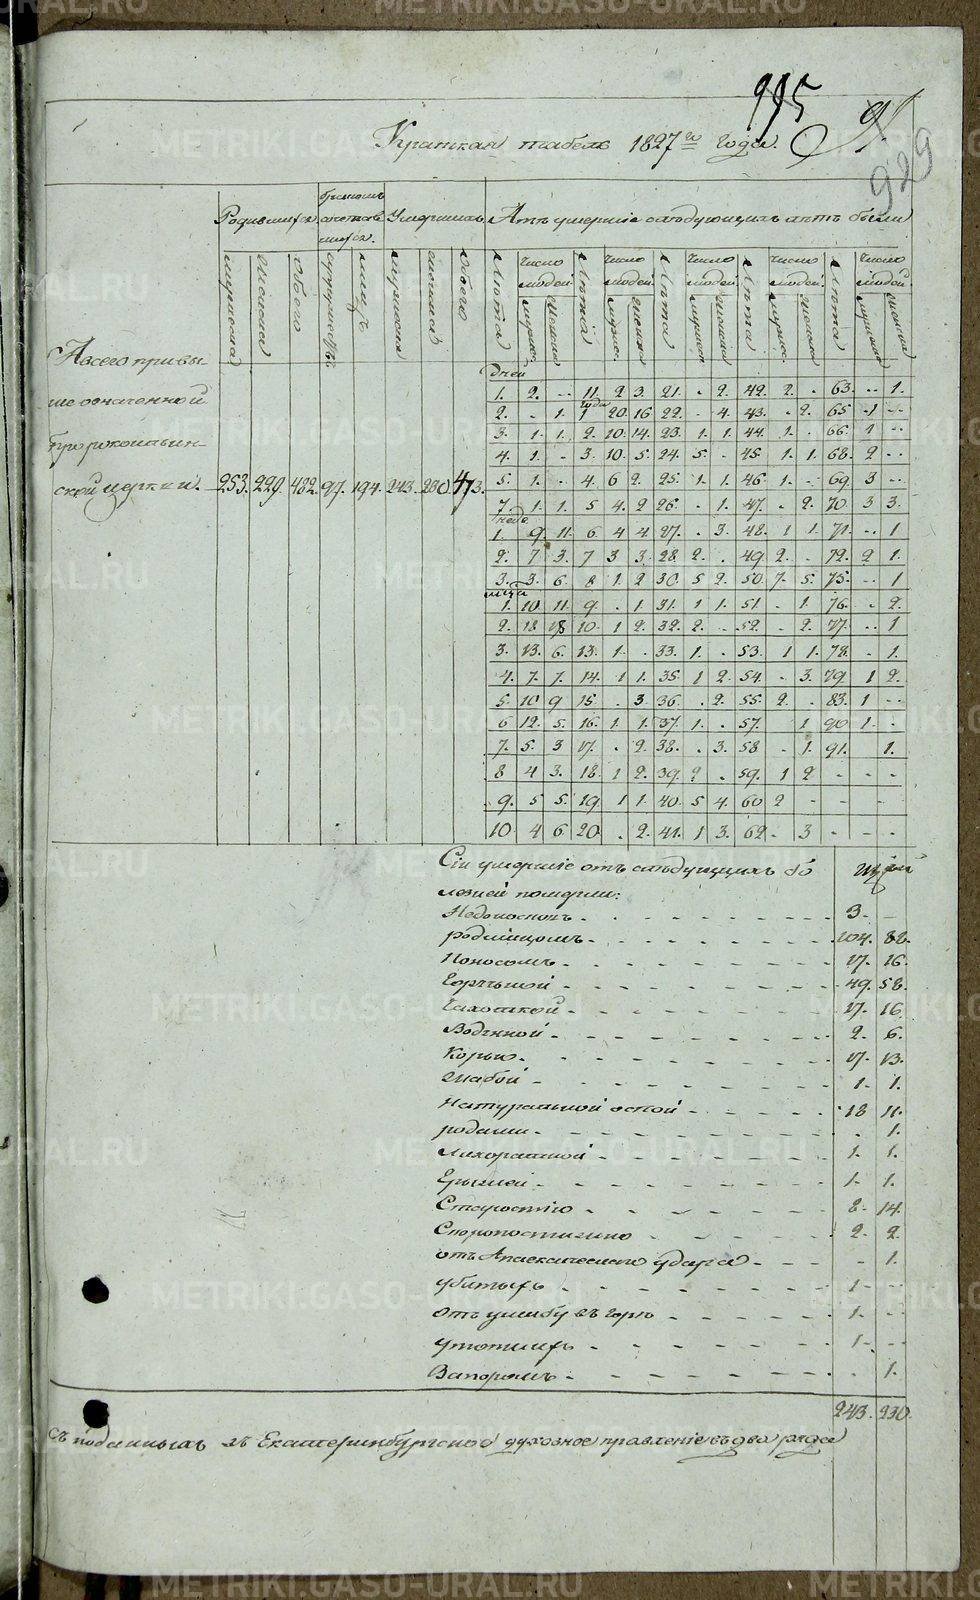 995
91
929
Краткая табель 1827го года.
Родившихся
бракомъ сочетавшихся.
Умершихъ
Лѣтъ умершіе слѣдующихъ лѣтъ были
мужеска
женска
обоего
лицъ
мужеска
женска
обоего
Лѣта
Число людей
Лѣта
Число людей
Лѣта
Число людей
Лѣта
Число людей
Лѣта
Число людей
А всего при вы-
ше означенной
ской церкви.
253. 229. 482. 97. 194. 243. 230. 473.
дней
1. 2. .. 11. 2 3. 21. . 2. 42. 2. . 63. .. 1.
года
2. . 1. 1 20. 16 22. . 4. 43. . 2. 65 .1 ..
3. 1. 1. 2. 10. 14. 23. 1. 1. 44. 1. . 66. 1 ..
4. 1. . 3. 10. 5. 24. 5. . 45 1. 1. 68. 2 ..
5. 1. . 4. 6 2. 25. 1. 1. 46. 1. . 69. 3 ..
7. 1. 1. 5 4. 2 26. . 1. 47. . 2. 70. 3 3.
неде
1. 9. 11. 6 4 4. 27. . 3. 48. 1 1. 71. .. 1
2. 7 3. 7 3 3. 28. 2. . 49. 2. . 72. 2 1.
3. 3. 6. 8 1. 2 30. 5 2. 50. 7. 5. 75. .. 1
мѣся
1. 10. 11. 9. . 1. 31. 1 1. 51. . 1. 76. . 2.
2. 12 18 10. 1 2. 32. 2. . 52. . 2. 77. .. 1
3. 13. 6. 13. 1. . 33. 1. . 53. 1 1. 78. . 1.
4. 7. 7. 14. 1 1. 35 1 2. 54. . 3. 79. 1 2.
5. 10 9 15. . 3. 36. . 2. 55. 2. . 83. 1 ..
6 12. 5. 16. 1. 1. 37. 1. . 57. 1 90 1. .
7. 5. 3 17. . 2. 38. . 3. 58 . 1. 91. 1.
8 4 3. 18. 1 2. 39. 2 . 59. 1 2 . . .
9. 5 5. 19. 1 1. 40. 5 4. 60 2 . . . .
10. 4 6 20. . 2. 41. 1 3. 62. . 3 . . .
Сіи умершіе отъ слѣдующихъ бо
лезней померли:
Недоноскомъ 3. -
родимцомъ 104. 82.
Поносомъ 17. 16.
Горячкой 49. 58.
Чахоткой 17. 16.
Водяной 2. 6.
Корью 17. 13.
Жабой 1. 1.
Натуральной оспой 18 11.
родами . 1.
Лихораткой 1. 1.
Грыжей 1. 1.
Старостію 8. 14.
Скоропостижно 2. 2.
отъ Апоплексическаго удара . 1.
убитыхъ 1. ..
Отъ ушибу въ горѣ 1. ..
утопшихъ 1. ..
Запоромъ . 1.
243. 230.
Съ подлинныхъ въ Екатеринбургское духовное правленіе въ два ряда